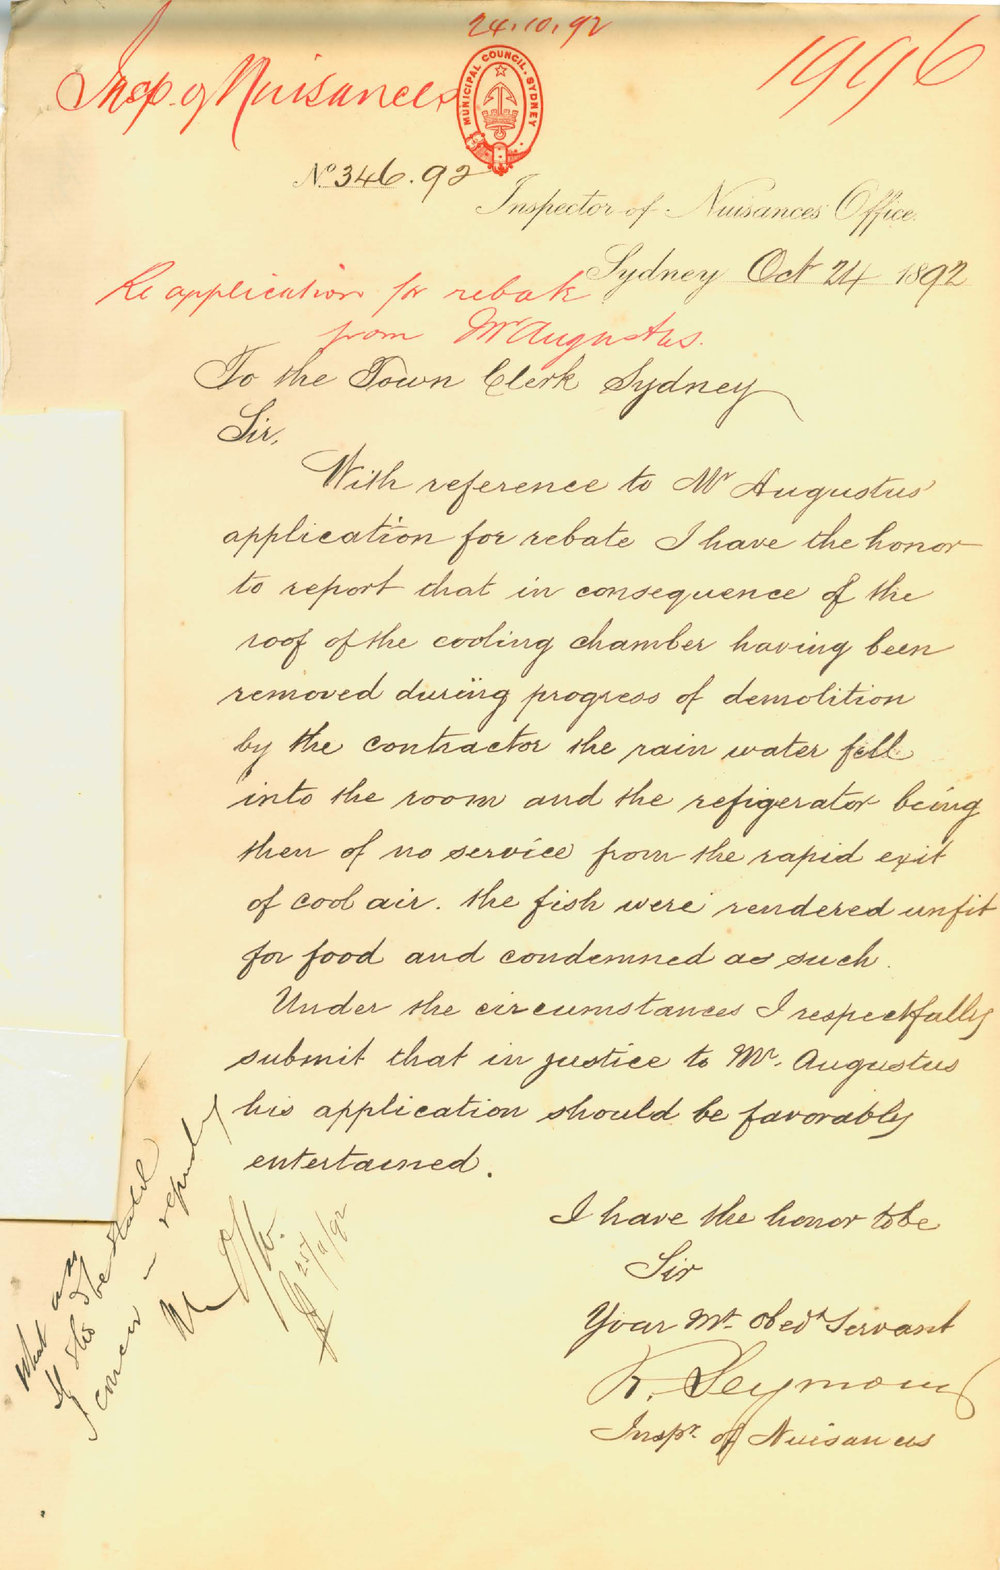 24.10.92
1996
Insp. of Nuisances
MUNICIPAL COUNCIL, SYDNEY
No 346.92
Inspector of Nuisances Office.
Sydney Oct 24 1892
Re application for rebate
from Mr Augustus.
To the Town Clerk Sydney
Sir,
With reference to Mr Augustus'
application for rebate I have the honor
to report that in consequence of the
roof of the cooling chamber having been
removed during progress of demolition
by the contractor the rain water fell
into the room and the refigerator being
then of no service from the rapid exit
of cool air. the fish were rendered unfit
for food and condemned as such.
Under the circumstances I respectfully
submit that in justice to Mr. Augustus
his application should be favorably
entertained.
I have the honor to be
Sir
Your Mt. Obedt Servant
R. Seymour
Inspr. of Nuisances
What
If this be
I concur in